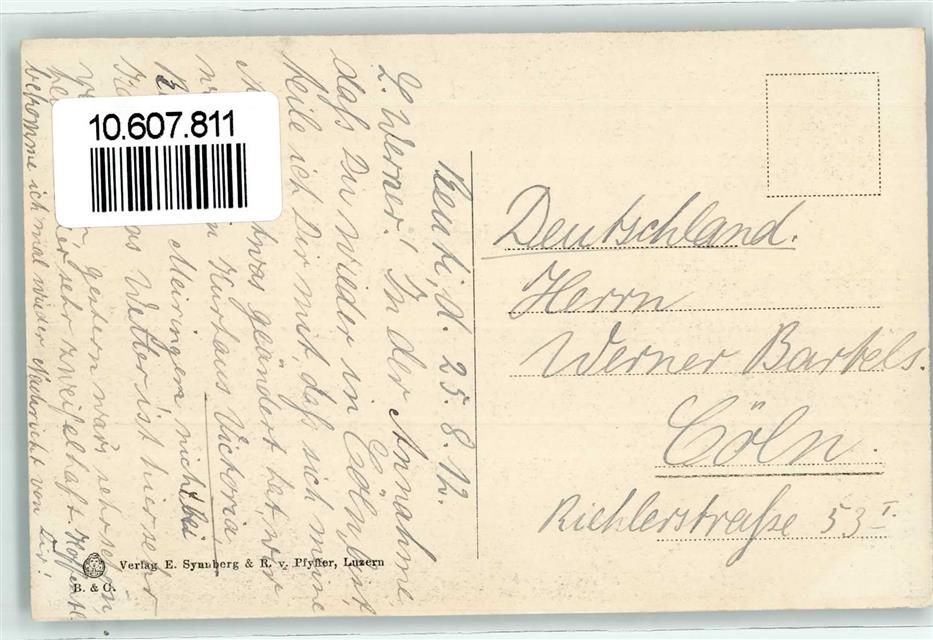 10.607.811
Reuti, d. 25.8.12.
L. Werner! In der Annahme
daß Du wieder in Cöln bist,
teile ich Dir mit daß sich meine
etwas geändert hat, wir
Kurhaus Victoria
Meiringen nicht bei
as Wetter ist hier sehr
gestern war's sehr schön,
er sehr zweifelhaft. Hoffentl.
bekomme ich mal wieder Nachricht von Dir!
Deutschland.
Herrn
Werner Bartels.
Cöln.
Riehlerstraße 53 I.
Verlag E. Synnberg & R. v. Pfyffer, Luzern
B. & C.